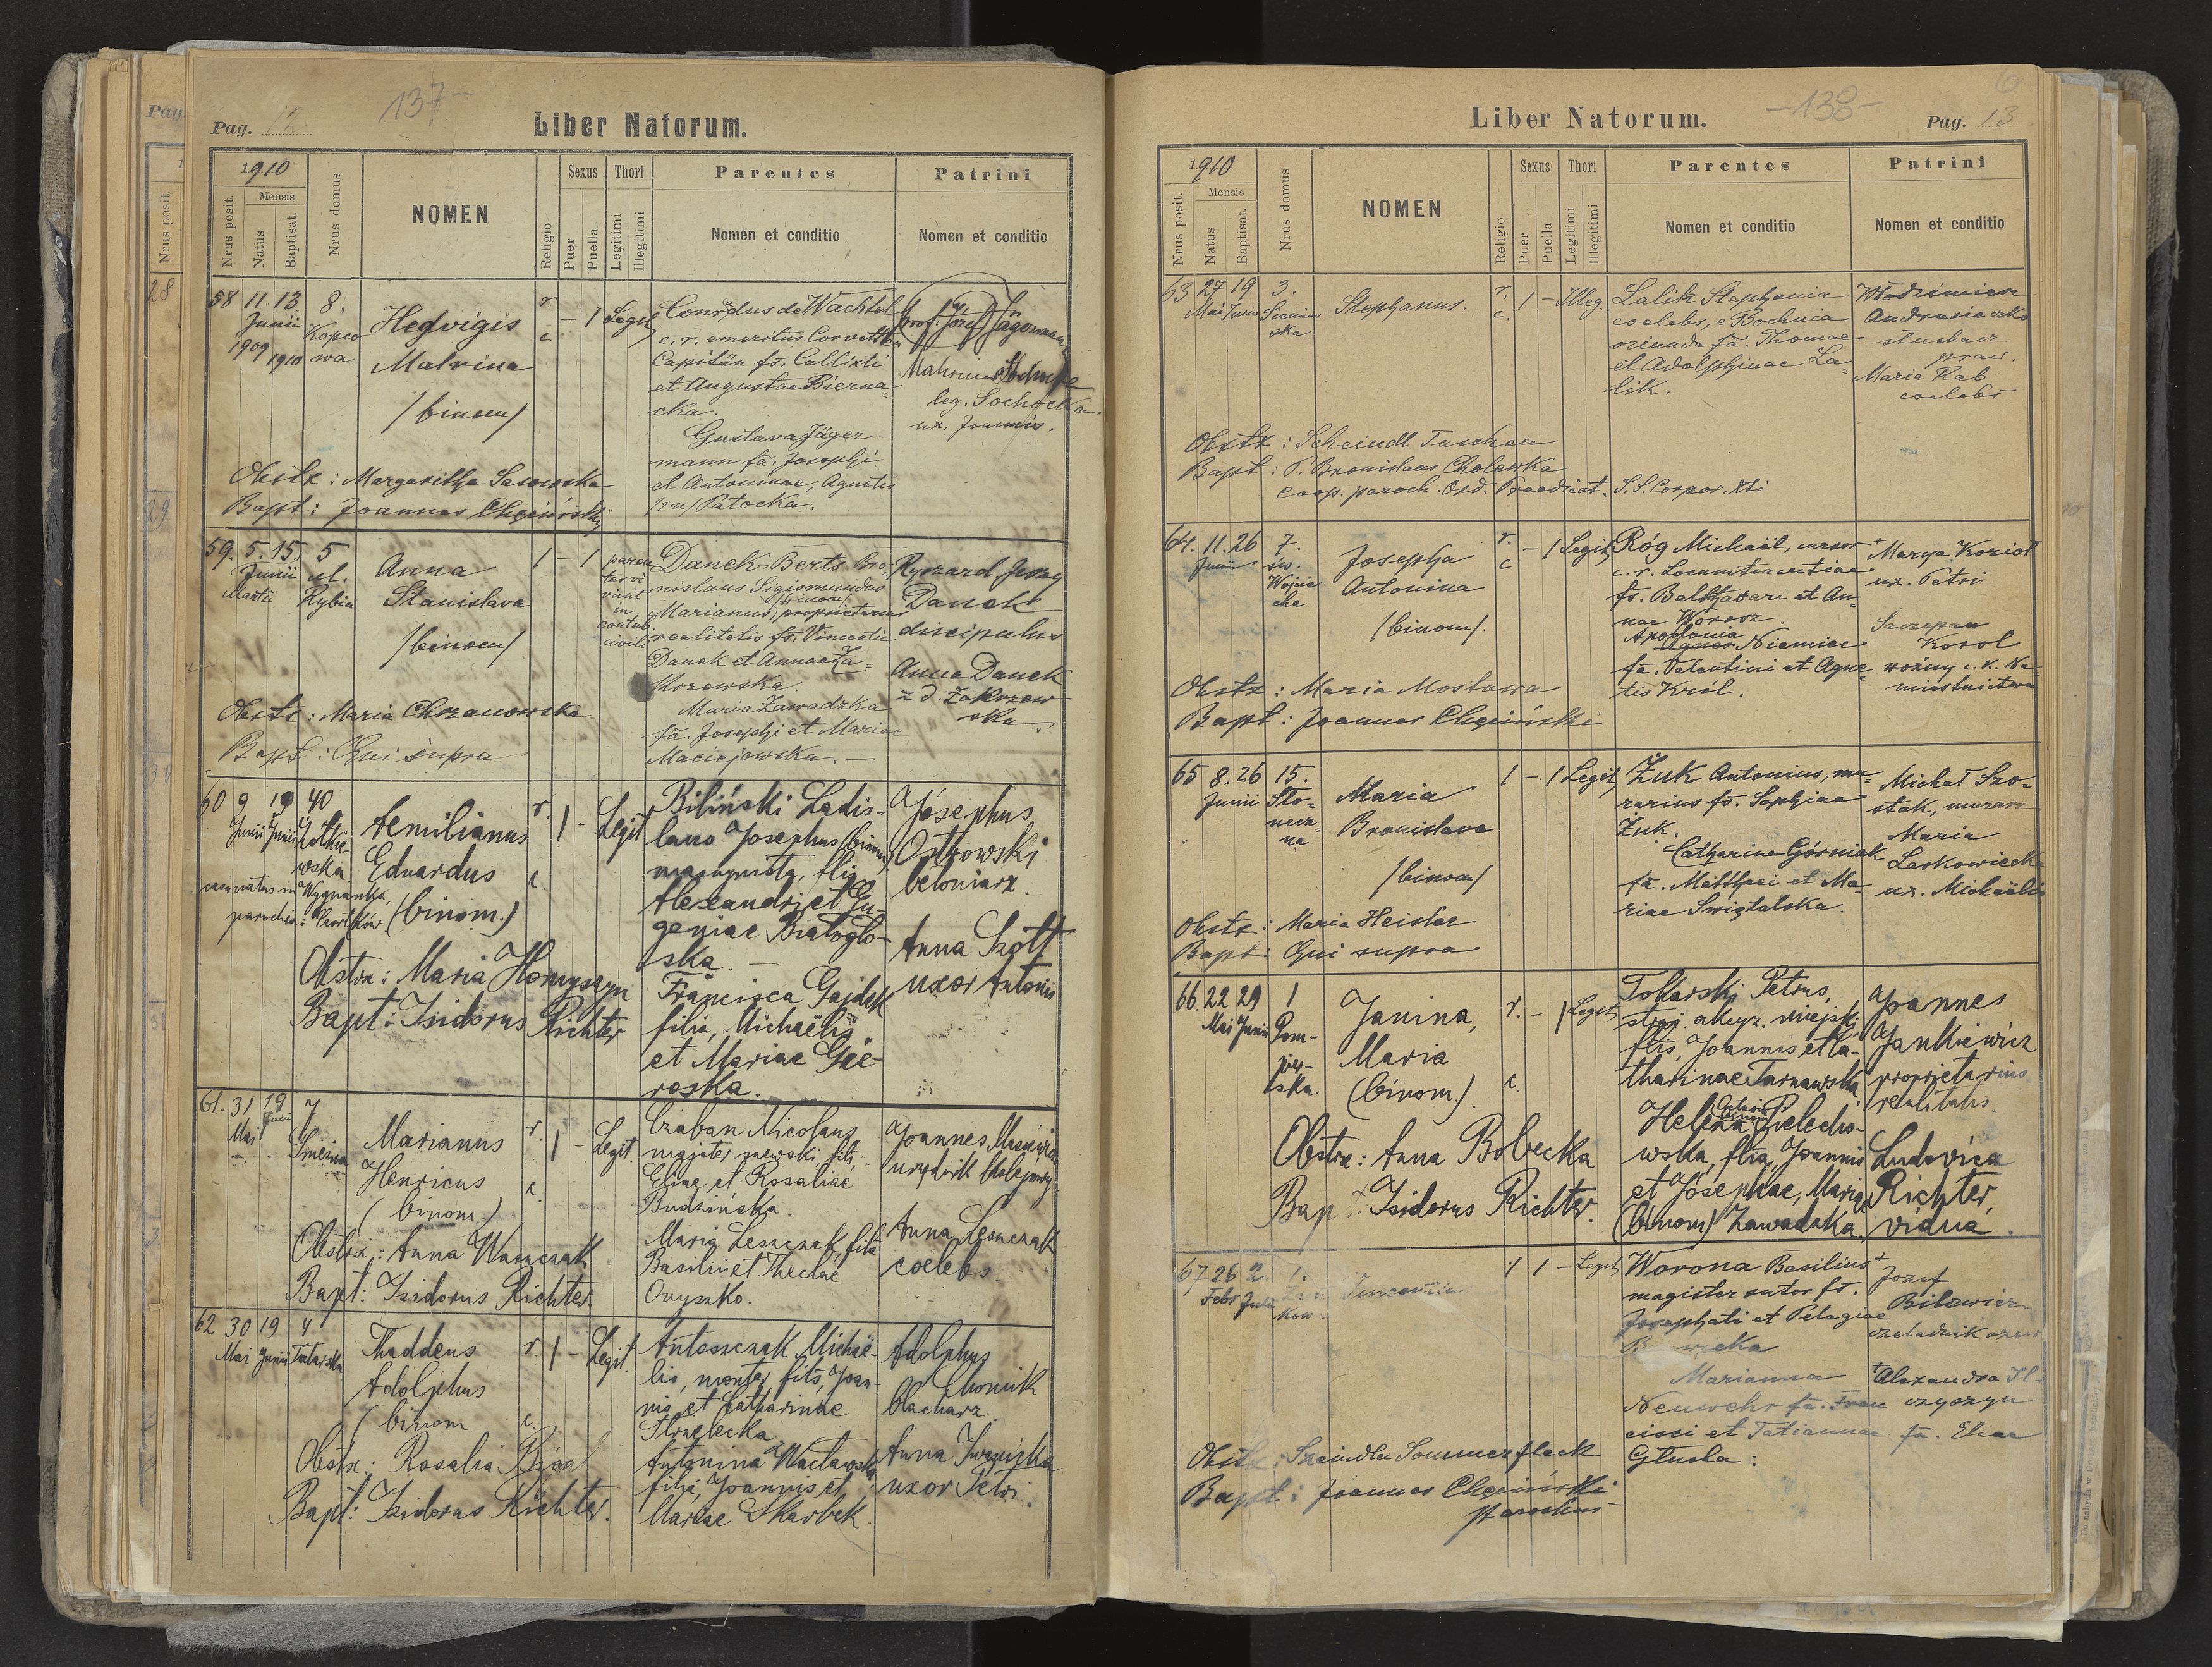 Pag. 12
137-
Liber Natorum.
1910
Nrus posit.
Mensis
Natus
Baptisat.
Nrus domus
NOMEN
Religio
Sexus
Puer
Puella
Thori
Legitimi
Illegitimi
Parentes
Nomen et conditio
Patrini
Nomen et conditio
58 11. 13 8.
Junii Kopco
1909 1910 wa
Hedvigis
Malvina
/binom/
r. c. - 1 Legit
Conrdus de Wachtel
c. r. emeritus Corvetten
Capitän fs. Callixti
et Augustae Bierna=
cka.
Gustava Jäger-
mann fa. Josephi
et Antoninae, Agnetis
Patocka.
prof. Józef Jägermann
leg. Sochocka
ux. Joannis.
Obstx: Margaritha Sasowska
Bapt: Joannes Chęciński
59. 5. 15. 5
Junii ul.
Martii Rybia
Anna
Stanislava
/binom/
1 - 1
in
contub.
civili
Danek-Berts Bro
nislaus Sigismundus
Marianus, proprietarius
realitatis fs. Vincentii
Danek et Annae Za=
krzewska.
Maria Zawadzka
fa. Josephi et Mariae
Maciejowska. -
Ryszard Jerzy
Danek
discipulus
Anna Danek
z d. Zakrzew
ska
Obstx: Maria Chrzanowska
Bapt: Qui supra
60 9 19 40
Junii Junii Żółkie
wska
Aemilianus
Eduardus
(binom.)
r. c. 1 - Legit
natus in Wygnanka,
parochia: Czortków
Biliński Ladis-
laus Josephus (binom)
maszynista, flis
Alexandri et Eu-
geniae Białogło-
ska. -
Francisca Gajdek
filia, Michaëlis
et Mariae Gąe-
roska.
Josephus
Ostrowski
betoniarz.
Anna Szott
uxor Antonii
Obstx: Maria Homyszyn
Bapt: Isidorus Richter
61. 31 19 7
Mai Junii Śnieżna
Marianus
Henricus
(binom.)
r. c. 1 - Legit.
Czaban Nicolaus
magister szewski, fils,
Eliae et Rosaliae
Budzińska.
Maria Leszczak, filia
Basilii et Theclae
Onyszko.
Joannes
urzędnik kolejowy
Anna Leszczak
coelebs.
Obstx: Anna Waszczak
Bapt: Isidorus Richter
62 30 19 4
Mai Junii Tatarska
Thaddeus
Adolphus
(binom
r. c. 1 - Legit.
Antoszczak Michaë-
lis, monter, fils, Joan-
nis et Catharinae
Strzelecka
Antonina Wacławska
filia, Joannis et
Mariae Skarbek
Adolphus
Chomik
blacharz.
Anna
uxor Petri.
Obstx: Rosalia
Bapt: Isidorus Richter.
Liber Natorum.
-138-
Pag. 13
1910
Nrus posit.
Mensis
Natus
Baptisat.
Nrus domus
NOMEN
Religio
Sexus
Puer
Puella
Thori
Legitimi
Illegitimi
Parentes
Nomen et conditio
Patrini
Nomen et conditio
63 27 19 3.
Mai Junii Sieniaw
ska
Stephanus.
r. c. 1 - Illeg.
Lalik Stephania
coelebs, e Bochnia
oriunda fa. Thomae
et Adolphinae La=
lik.
Włodzimierz
Andrusieczko
słuchacz
praw.
Maria Rab
coelebs
Obstx: Scheindl Tuschen
Bapt: P. Bronislaus Cholewka
coop. paroch. Ord. Praedicat. S.S. Corpor. Xti
64. 11. 26 7.
Junii św.
Wojcie
cha
Josepha
Antonina
/binom/.
r. c - 1 Legit
Róg Michaël, cursor
c. r. Locumtenentiae
fs. Balthasari et An=
nae Worosz
Apollonia
Agnes Niemiec
fa. Valentini et Agne=
tis Król.
+ Marya Kozioł
ux. Petri
Szczepan
Korol
woźny c. k. Na=
miestnictwa
Obstx: Maria Mostowa
Bapt: Joannes Chęciński
65 8. 26 15.
Junii Sło=
necz=
na
Maria
Bronislava
/binom/
1 - 1 Legit
Żuk Antonius, mu=
rarius fs. Sophiae
Żuk.
Catharina Górniak
fa. Matthaei et Ma=
riae Świętalska.
Michał Szo=
stak, murarz
Maria
Laskowiecka
ux. Michaëlis
Obstx: Maria Heisler
Bapt: Qui supra
66. 22 29 1
Mai Junii Pom-
pier-
ska.
Janina,
Maria
(binom.)
r. c. - 1 Legit
Tokarski Petrus,
straż. akcyz. miejski,
flis, Joannis et Ca-
tharinae Tarnawska,
Helena Zielecho-
wska, flia, Joannis
et Josephae, Maria
(binom) Zawadzka,
Joannes
Jankiewicz
proprietarius
realitatis.
Ludovica
Richter,
vidua.
Obstx: Anna Bobecka
Bapt: Isidorus Richter.
67 26 2. 1.
Febr. Julii
kowa
1 1 - Legit
Worona Basilius
magister sutor fs.
Josephati et Pelagiae
Marianna
Neuwehr fa. Fran
cisci et Tatiannae
Głuska.
+ Józef
Bilewicz
czeladnik szew
+ Alexandra Il-
czyszyn
fa. Eliae
Obstx: Szeindla Sommerfleck
Bapt: Joannes Chęciński
parochus